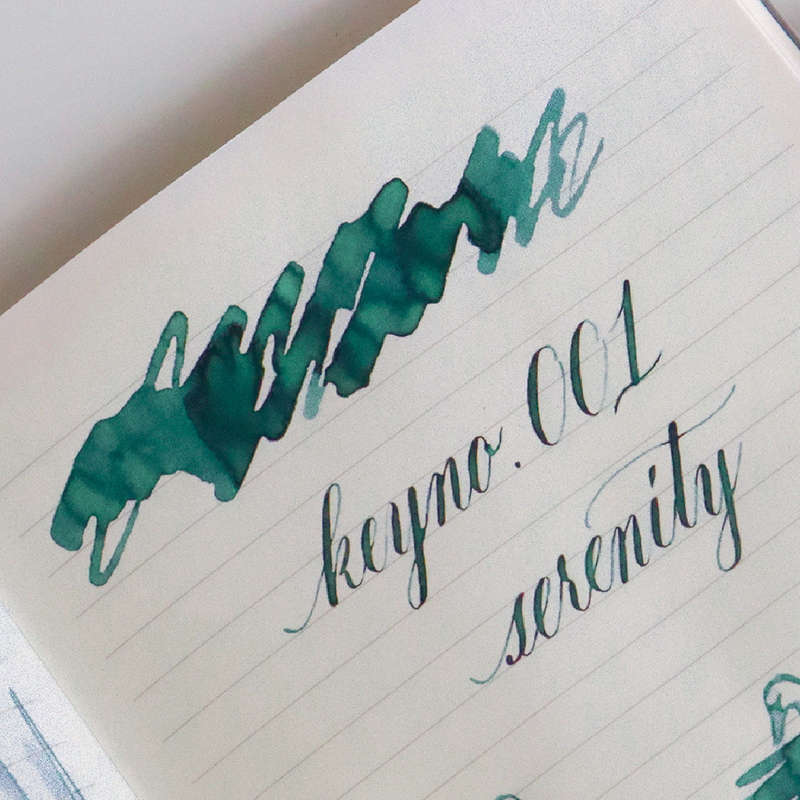 keyno. 001
serenity